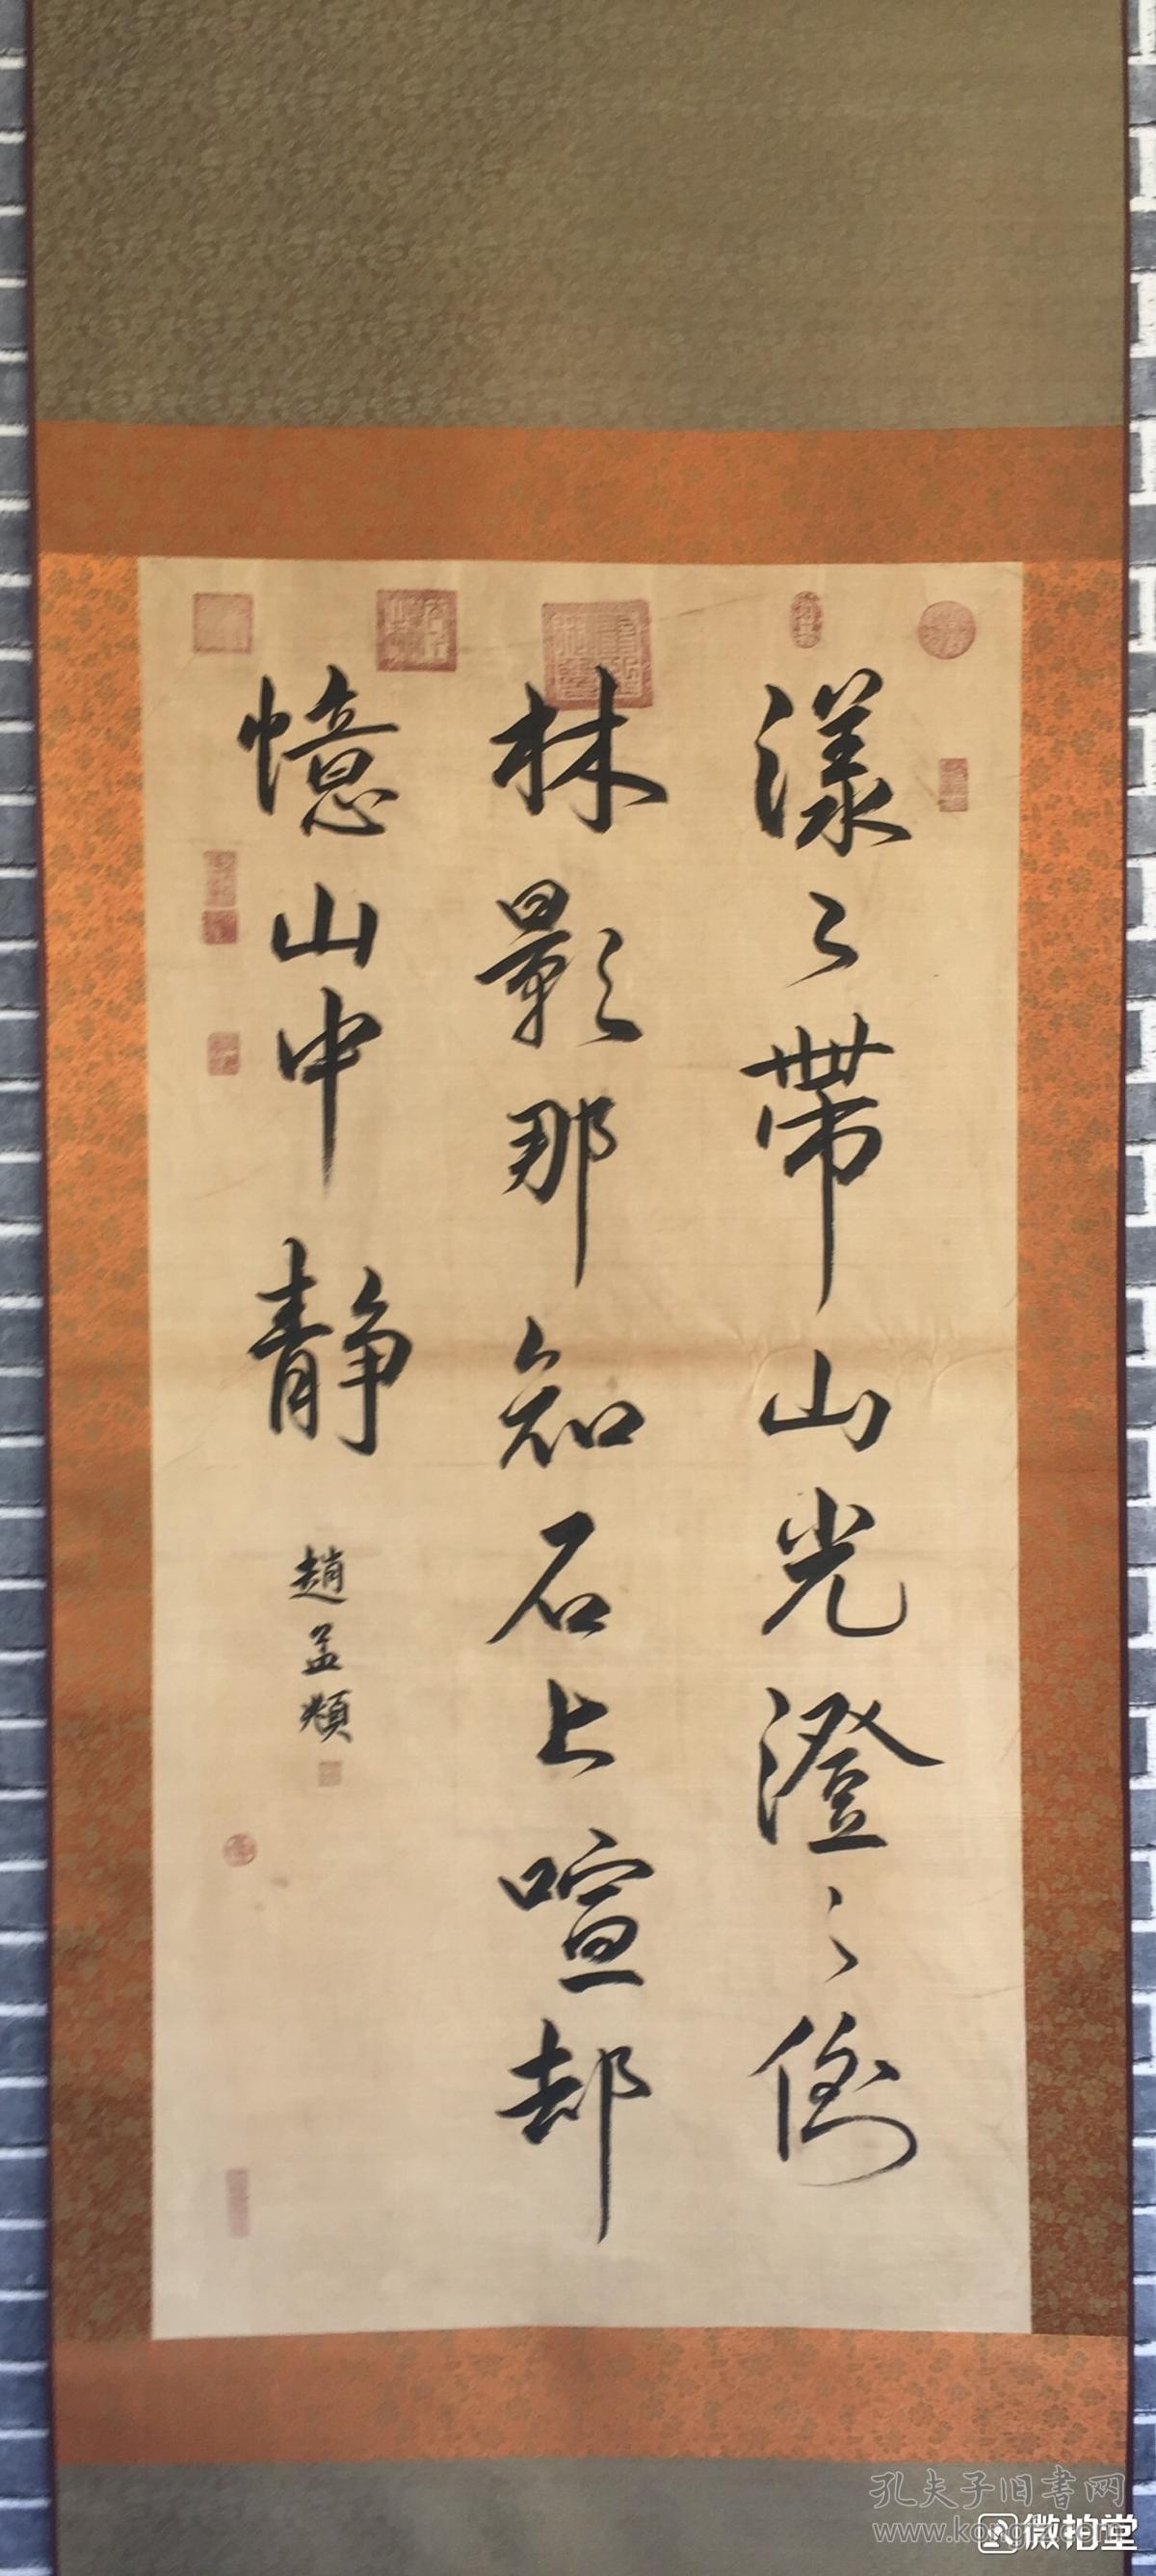 漾〻帶山光澄〻倒
林影那知石上喧却
憶山中静
趙孟頫
孔夫子旧书网
www.kongfz.com
微拍堂